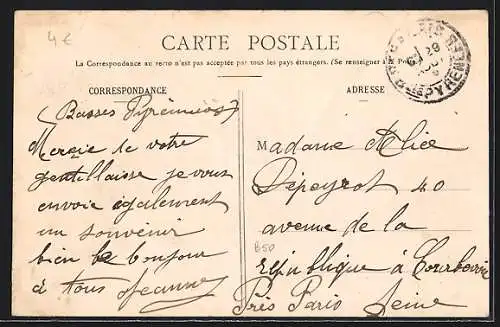 4€
CARTE POSTALE
La Correspondance au recto n'est pas acceptée par tous les pays étrangers. (Se renseigner à la Poste
CORRESPONDANCE
ADRESSE
29
PYRENEES
(Basses Pyrénnées)
Mercie de votre
gentillaisse je vous
envoie également
un souvenir
bien le bonjour
à tous Jeanne
Madame Alice
Dépeyrot 40
avenue de la
République à Courbevoie
Près Paris Seine
B50